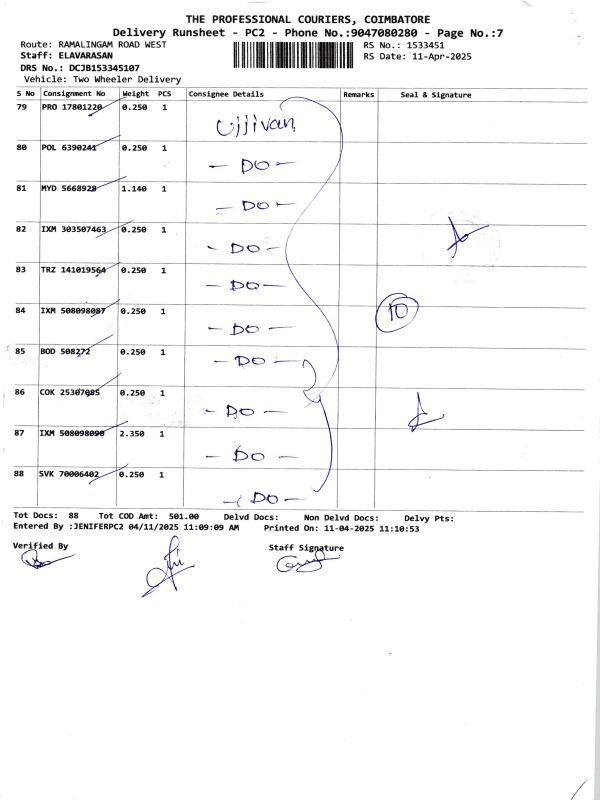 THE PROFESSIONAL COURIERS, COIMBATORE
Delivery Runsheet - PC2 - Phone No.:9047080280 - Page No.:7
Route: RAMALINGAM ROAD WEST
Staff: ELAVARASAN
DRS No.: DCJB153345107
Vehicle: Two Wheeler Delivery
RS No.: 1533451
RS Date: 11-Apr-2025
S No Consignment No Weight PCS Consignee Details Remarks Seal & Signature
79 PRO 17801220 0.250 1 Ujjivan
80 POL 6390241 0.250 1 - DO -
81 MYD 5668928 1.140 1 - DO -
82 IXM 303507463 0.250 1 - DO -
83 TRZ 141019564 0.250 1 - DO -
84 IXM 508098087 0.250 1 - DO - 10
85 BOD 508272 0.250 1 - DO -
86 COK 25307085 0.250 1 - DO -
87 IXM 508098090 2.350 1 - DO -
88 SVK 70006402 0.250 1 - DO -
Tot Docs: 88 Tot COD Amt: 501.00 Delvd Docs: Non Delvd Docs: Delvy Pts:
Entered By :JENIFERPC2 04/11/2025 11:09:09 AM Printed On: 11-04-2025 11:10:53
Verified By Staff Signature